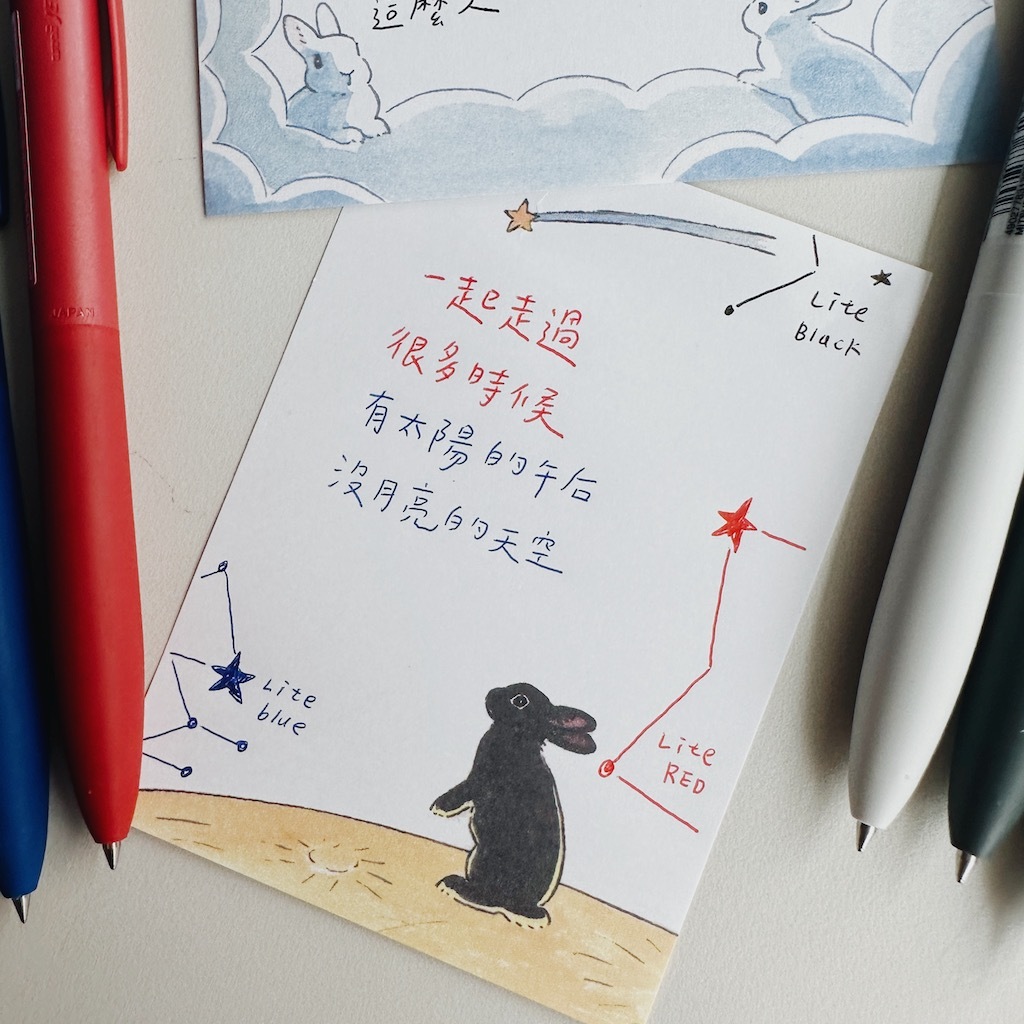 這麼人
一起走過
很多時候
有太陽的午后
沒月亮的天空
Lite
Black
Lite
blue
Lite
RED
JAPAN
uni